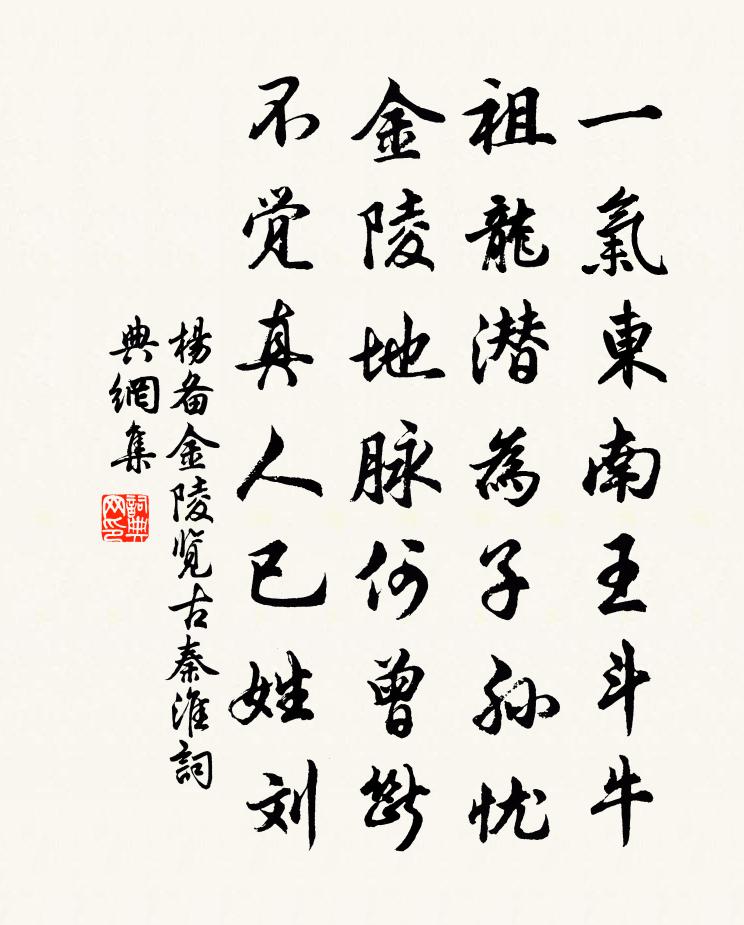 一氣東南王斗牛
祖龍潜為子孫忧
金陵地脉何曾断
不觉真人已姓刘
楊备金陵览古秦淮詞
典網集
詞典網印